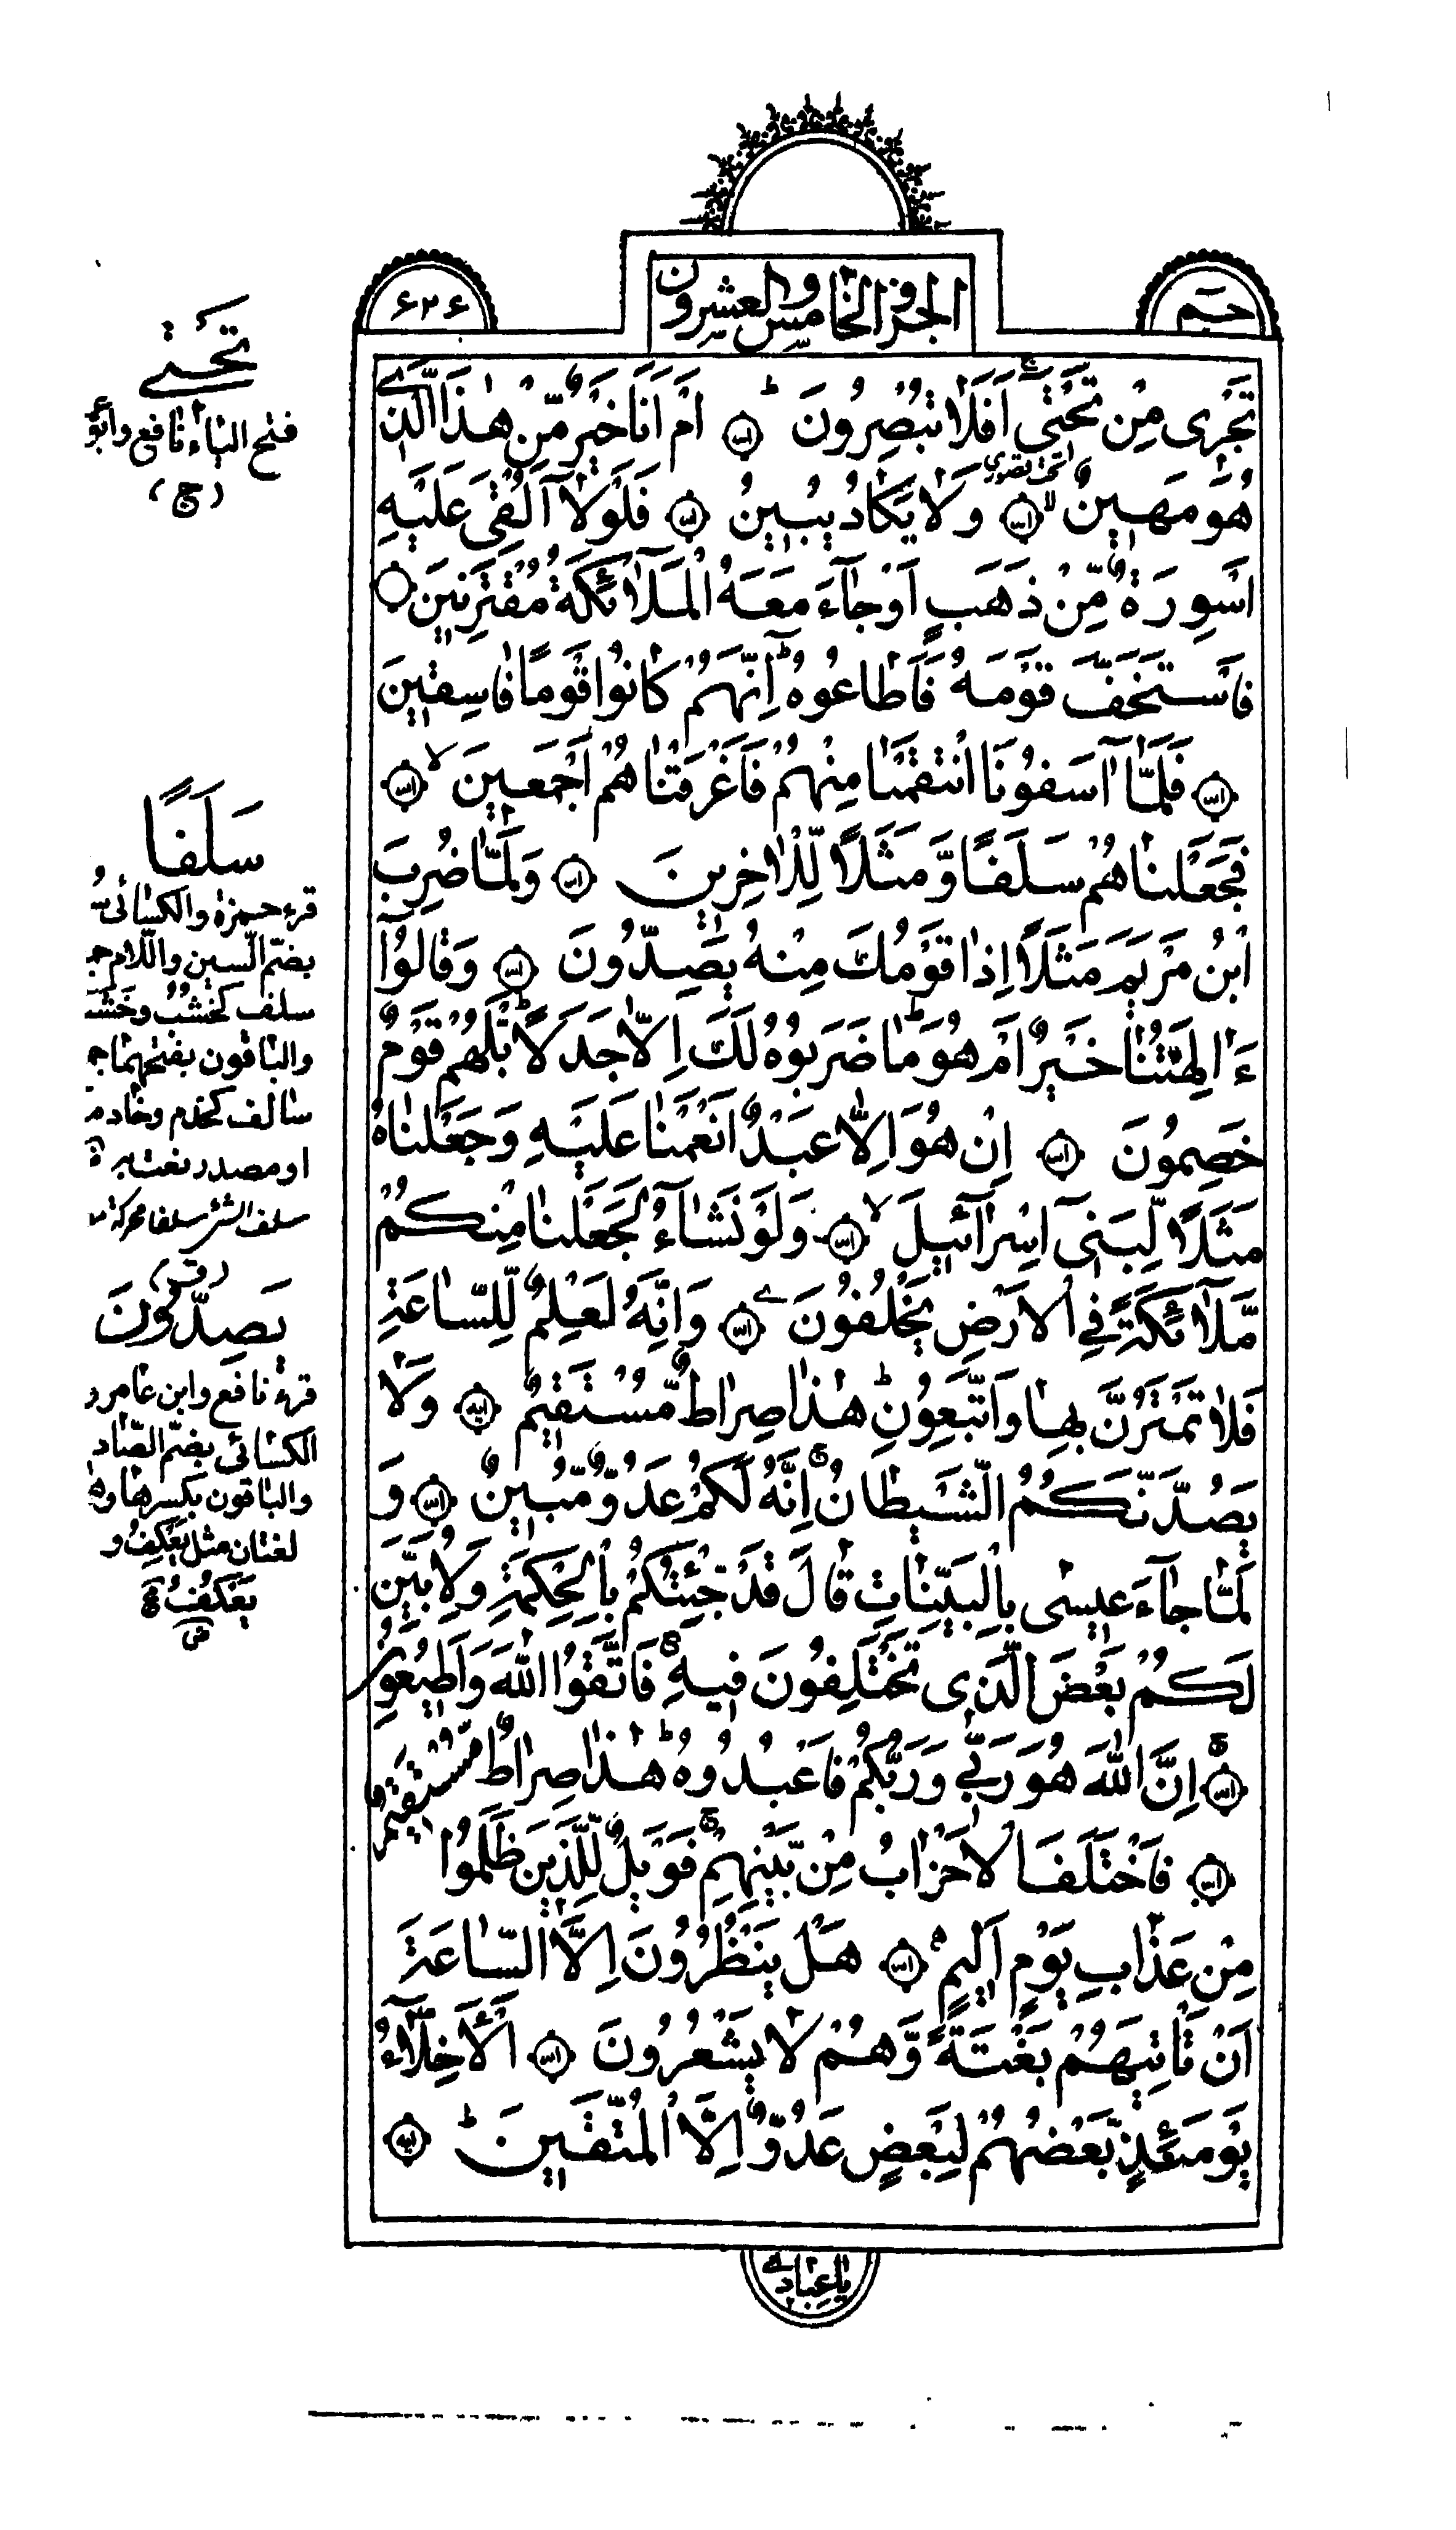 حم
الجزؤ الخامس والعشرون
۶۲۶
تَجْرِی مِنْ تَحْتِیۚ اَفَلَا تُبْصِرُونَ ط اَمْ اَنَا خَیْرٌ مِّنْ هٰذَا الَّذِی
هُوَ مَهِینٌ لا وَلَا یَكَادُ یُبِینُ فَلَوْلَآ اُلْقِیَ عَلَیْهِ
اَسْوِرَةٌ مِّنْ ذَهَبٍ اَوْ جَآءَ مَعَهُ الْمَلَآئِكَةُ مُقْتَرِنِینَ
فَاسْتَخَفَّ قَوْمَهُ فَاَطَاعُوهُ ط اِنَّهُمْ كَانُوا قَوْمًا فَاسِقِینَ
فَلَمَّآ آسَفُونَا انْتَقَمْنَا مِنْهُمْ فَاَغْرَقْنَاهُمْ اَجْمَعِینَ لا
فَجَعَلْنَاهُمْ سَلَفًا وَّمَثَلًا لِّلْاٰخِرِینَ وَلَمَّا ضُرِبَ
ابْنُ مَرْیَمَ مَثَلًا اِذَا قَوْمُكَ مِنْهُ یَصِدُّونَ وَقَالُوٓا
ءَاٰلِهَتُنَا خَیْرٌ اَمْ هُوَ ط مَا ضَرَبُوهُ لَكَ اِلَّا جَدَلًا ط بَلْ هُمْ قَوْمٌ
خَصِمُونَ اِنْ هُوَ اِلَّا عَبْدٌ اَنْعَمْنَا عَلَیْهِ وَجَعَلْنَاهُ
مَثَلًا لِّبَنِیٓ اِسْرَآئِیلَ لا وَلَوْ نَشَآءُ لَجَعَلْنَا مِنْكُمْ
مَّلَآئِكَةً فِی الْاَرْضِ یَخْلُفُونَ وَاِنَّهُ لَعِلْمٌ لِّلسَّاعَةِ
فَلَا تَمْتَرُنَّ بِهَا وَاتَّبِعُونِ ط هٰذَا صِرَاطٌ مُّسْتَقِیمٌ وَلَا
یَصُدَّنَّكُمُ الشَّیْطَانُ ج اِنَّهُ لَكُمْ عَدُوٌّ مُّبِینٌ وَ
لَمَّا جَآءَ عِیسٰی بِالْبَیِّنَاتِ قَالَ قَدْ جِئْتُكُمْ بِالْحِكْمَةِ وَلِاُبَیِّنَ
لَكُمْ بَعْضَ الَّذِی تَخْتَلِفُونَ فِیهِ ج فَاتَّقُوا اللّٰهَ وَاَطِیعُونِ
اِنَّ اللّٰهَ هُوَ رَبِّی وَرَبُّكُمْ فَاعْبُدُوهُ ط هٰذَا صِرَاطٌ مُّسْتَقِیمٌ
فَاخْتَلَفَ الْاَحْزَابُ مِنْ بَیْنِهِمْ ج فَوَیْلٌ لِّلَّذِینَ ظَلَمُوا
مِنْ عَذَابِ یَوْمٍ اَلِیمٍ هَلْ یَنْظُرُونَ اِلَّا السَّاعَةَ
اَنْ تَاْتِیَهُمْ بَغْتَةً وَّهُمْ لَا یَشْعُرُونَ اَلْاَخِلَّآءُ
یَوْمَئِذٍ بَعْضُهُمْ لِبَعْضٍ عَدُوٌّ اِلَّا الْمُتَّقِینَ ط
یَا عِبَادِ
تَحْتِیَ
فتح الیاء نافع وابو
(ج)
سَلَفًا
قرء حمزة والكسائی
بضم السین واللام
سلف كخشب وخشب
والباقون بفتحهما
سالف كخدم وخادم
او مصدر نعت به
سلف الشئ سلفا محركة
یَصِدُّونَ
قرء نافع وابن عامر و
الكسائی بضم الصاد
والباقون بكسرها و
لغتان مثل یَعْكِفُ و
یَعْكُفُ